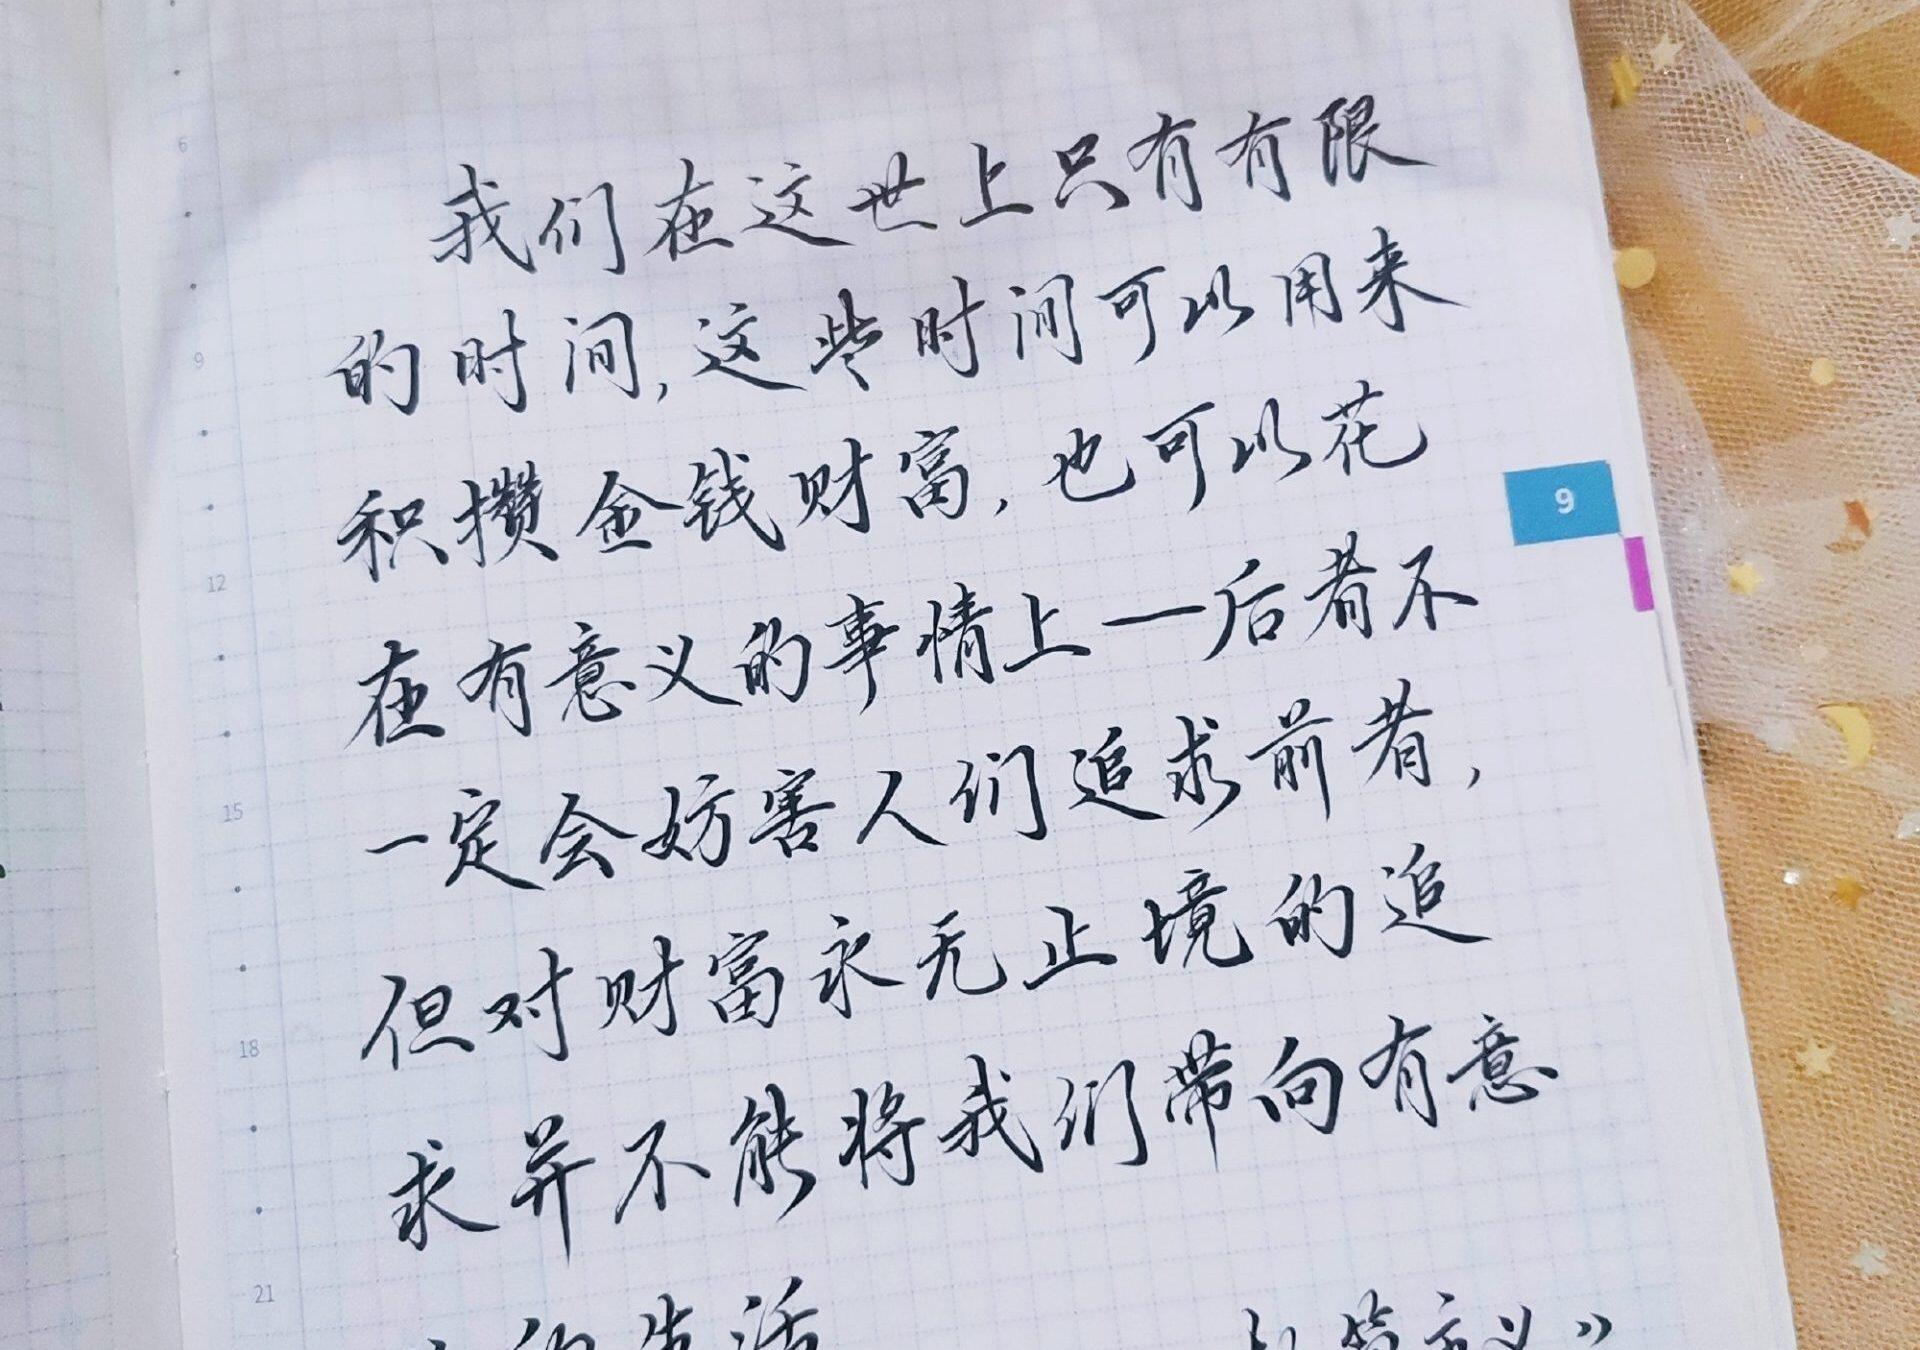 6
我们在这世上只有有限
9
的时间,这些时间可以用来
积攒金钱财富,也可以花
9
12
在有意义的事情上—后者不
15
一定会妨害人们追求前者,
但对财富永无止境的追
18
求并不能将我们带向有意
21
的生活
主义》